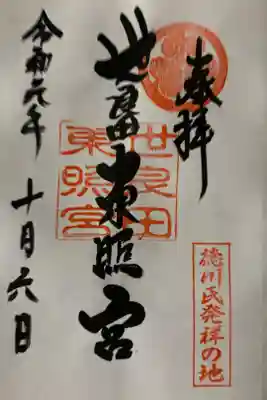 奉拝
徳川氏発祥の地
世良田東照宮
世良田
東照宮
令和元年
十月六日